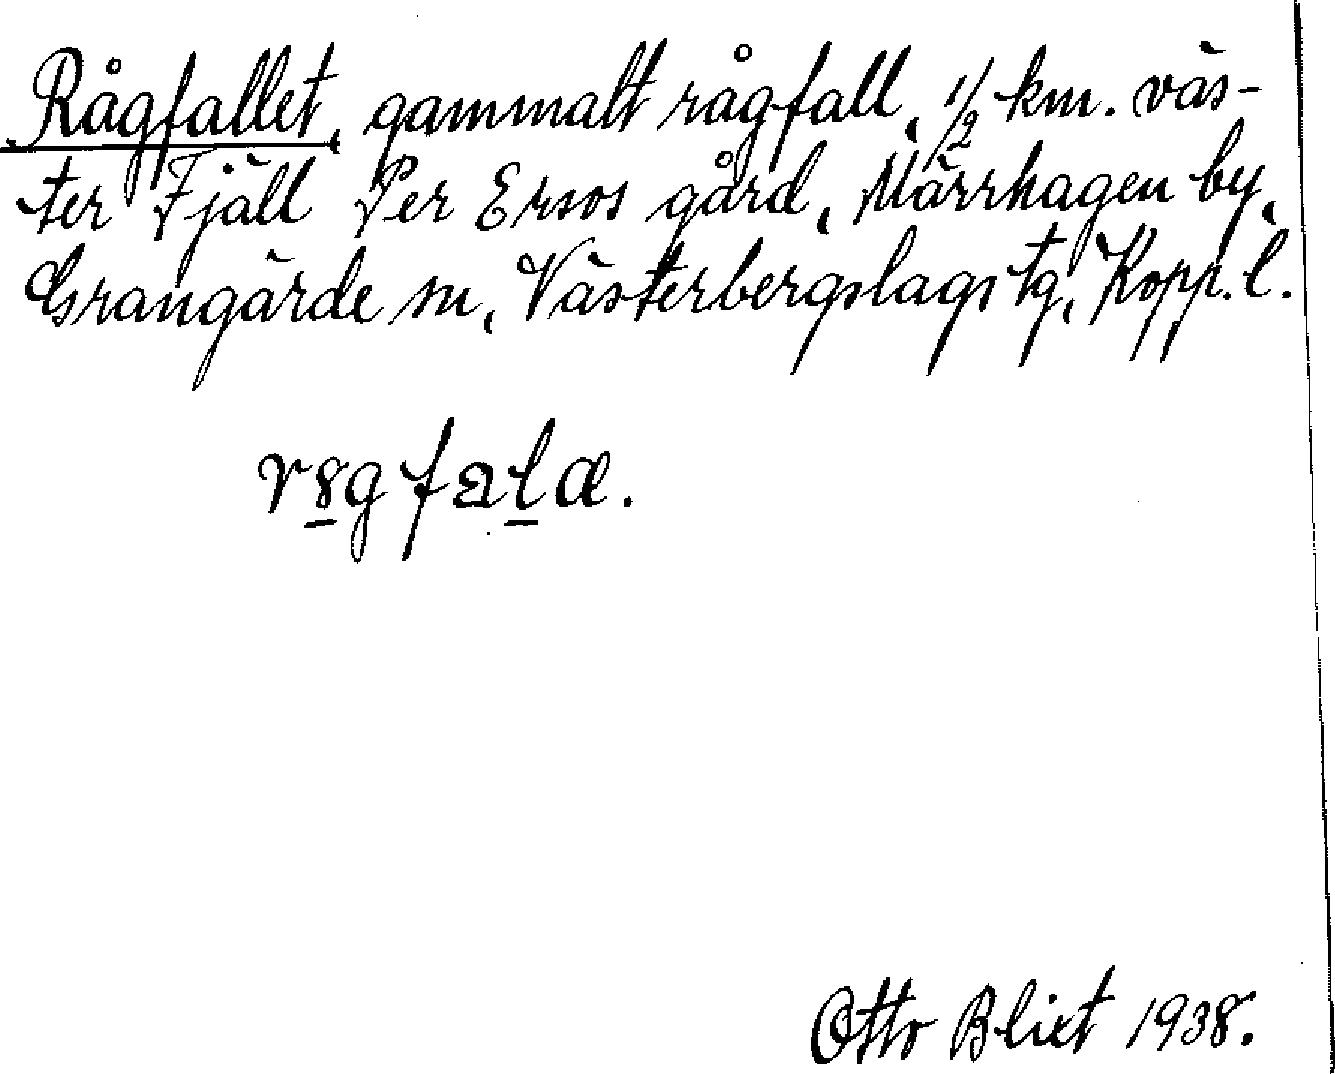 Rågfallet, gammalt rågfall, 1/2 km. väs-
ter Fjäll Per Ersos gård, Märrhagen by,
Grangärde sn, Västerbergslags tg, Kopp. l.
Otto Blixt 1938.